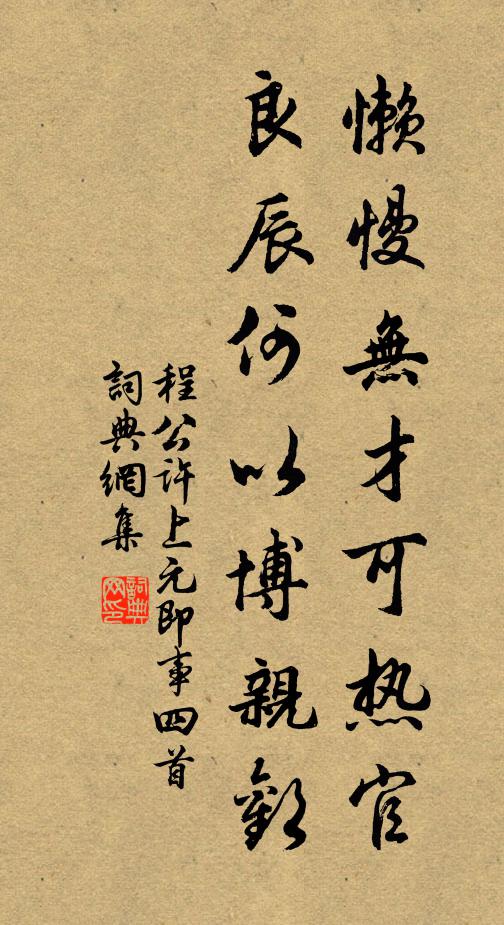 懶慢無才可热官
良辰何以博親歡
程公許上元即事四首
詞典網集
詞典網印